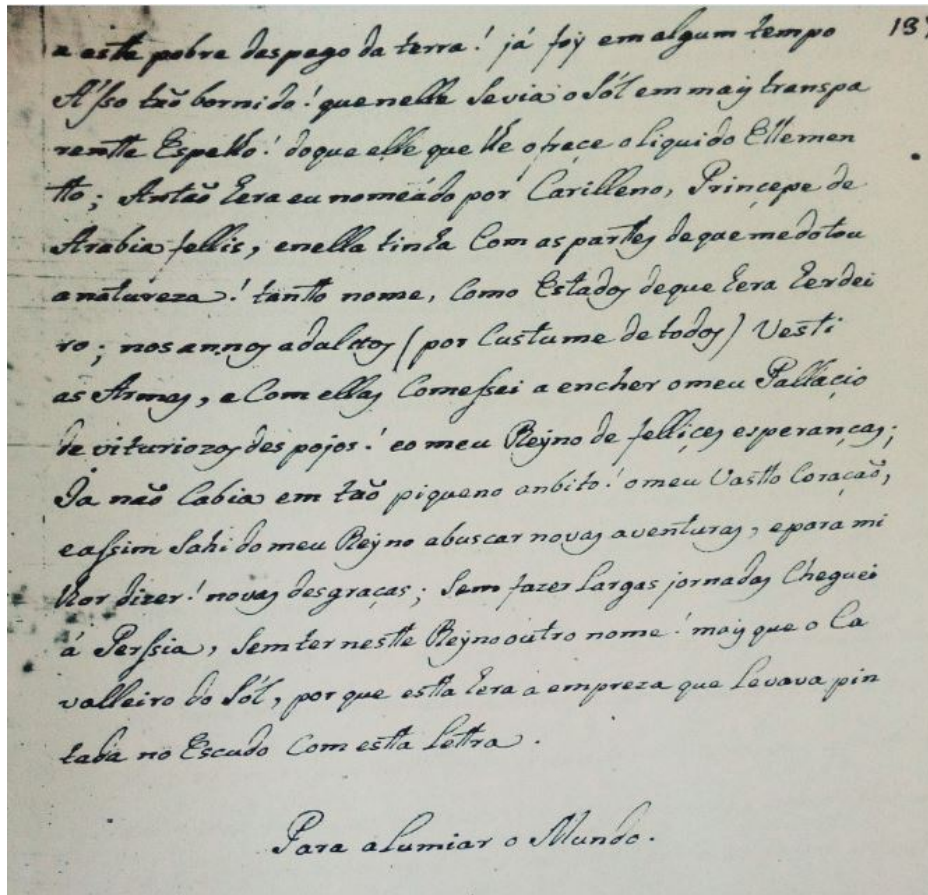 a esta pobre despego da terra! já foy em algum tempo 137
Asso tão bornido! que nelle Se via o Sól em mais transpa
rentte Espelho! do que elle que lhe ofrece o liquido Ellemen
tto; Anttão hera eu nomeádo por Carilleno, Princepe de
Arabia fellis, enella tinha Com as parttes de que me dotou
a natureza! tantto nome, Como Estados de que hera herdei
ro; nos annos adalttos (por Custume de todos) Vesti
as Armas, e Com ellas Comessei a encher o meu Pallacio
de vituriozos des pojos! eo meu Reyno de fellices esperanças;
Ja não Cabia em tão piqueno anbito! o meu Vastto Coração,
e assim Sahi do meu Reyno abuscar novas aventuras, e para mi
lhor dizer! novas desgraças; Sem fazer Largas jornadas Cheguei
á Perssia, Sem ter nestte Reyno outro nome! mais que o Ca
valleiro do Sól, por que estta hera a empreza que Levava pin
tada no Escudo Com estta Lettra.
Para aLumiar o Mundo.